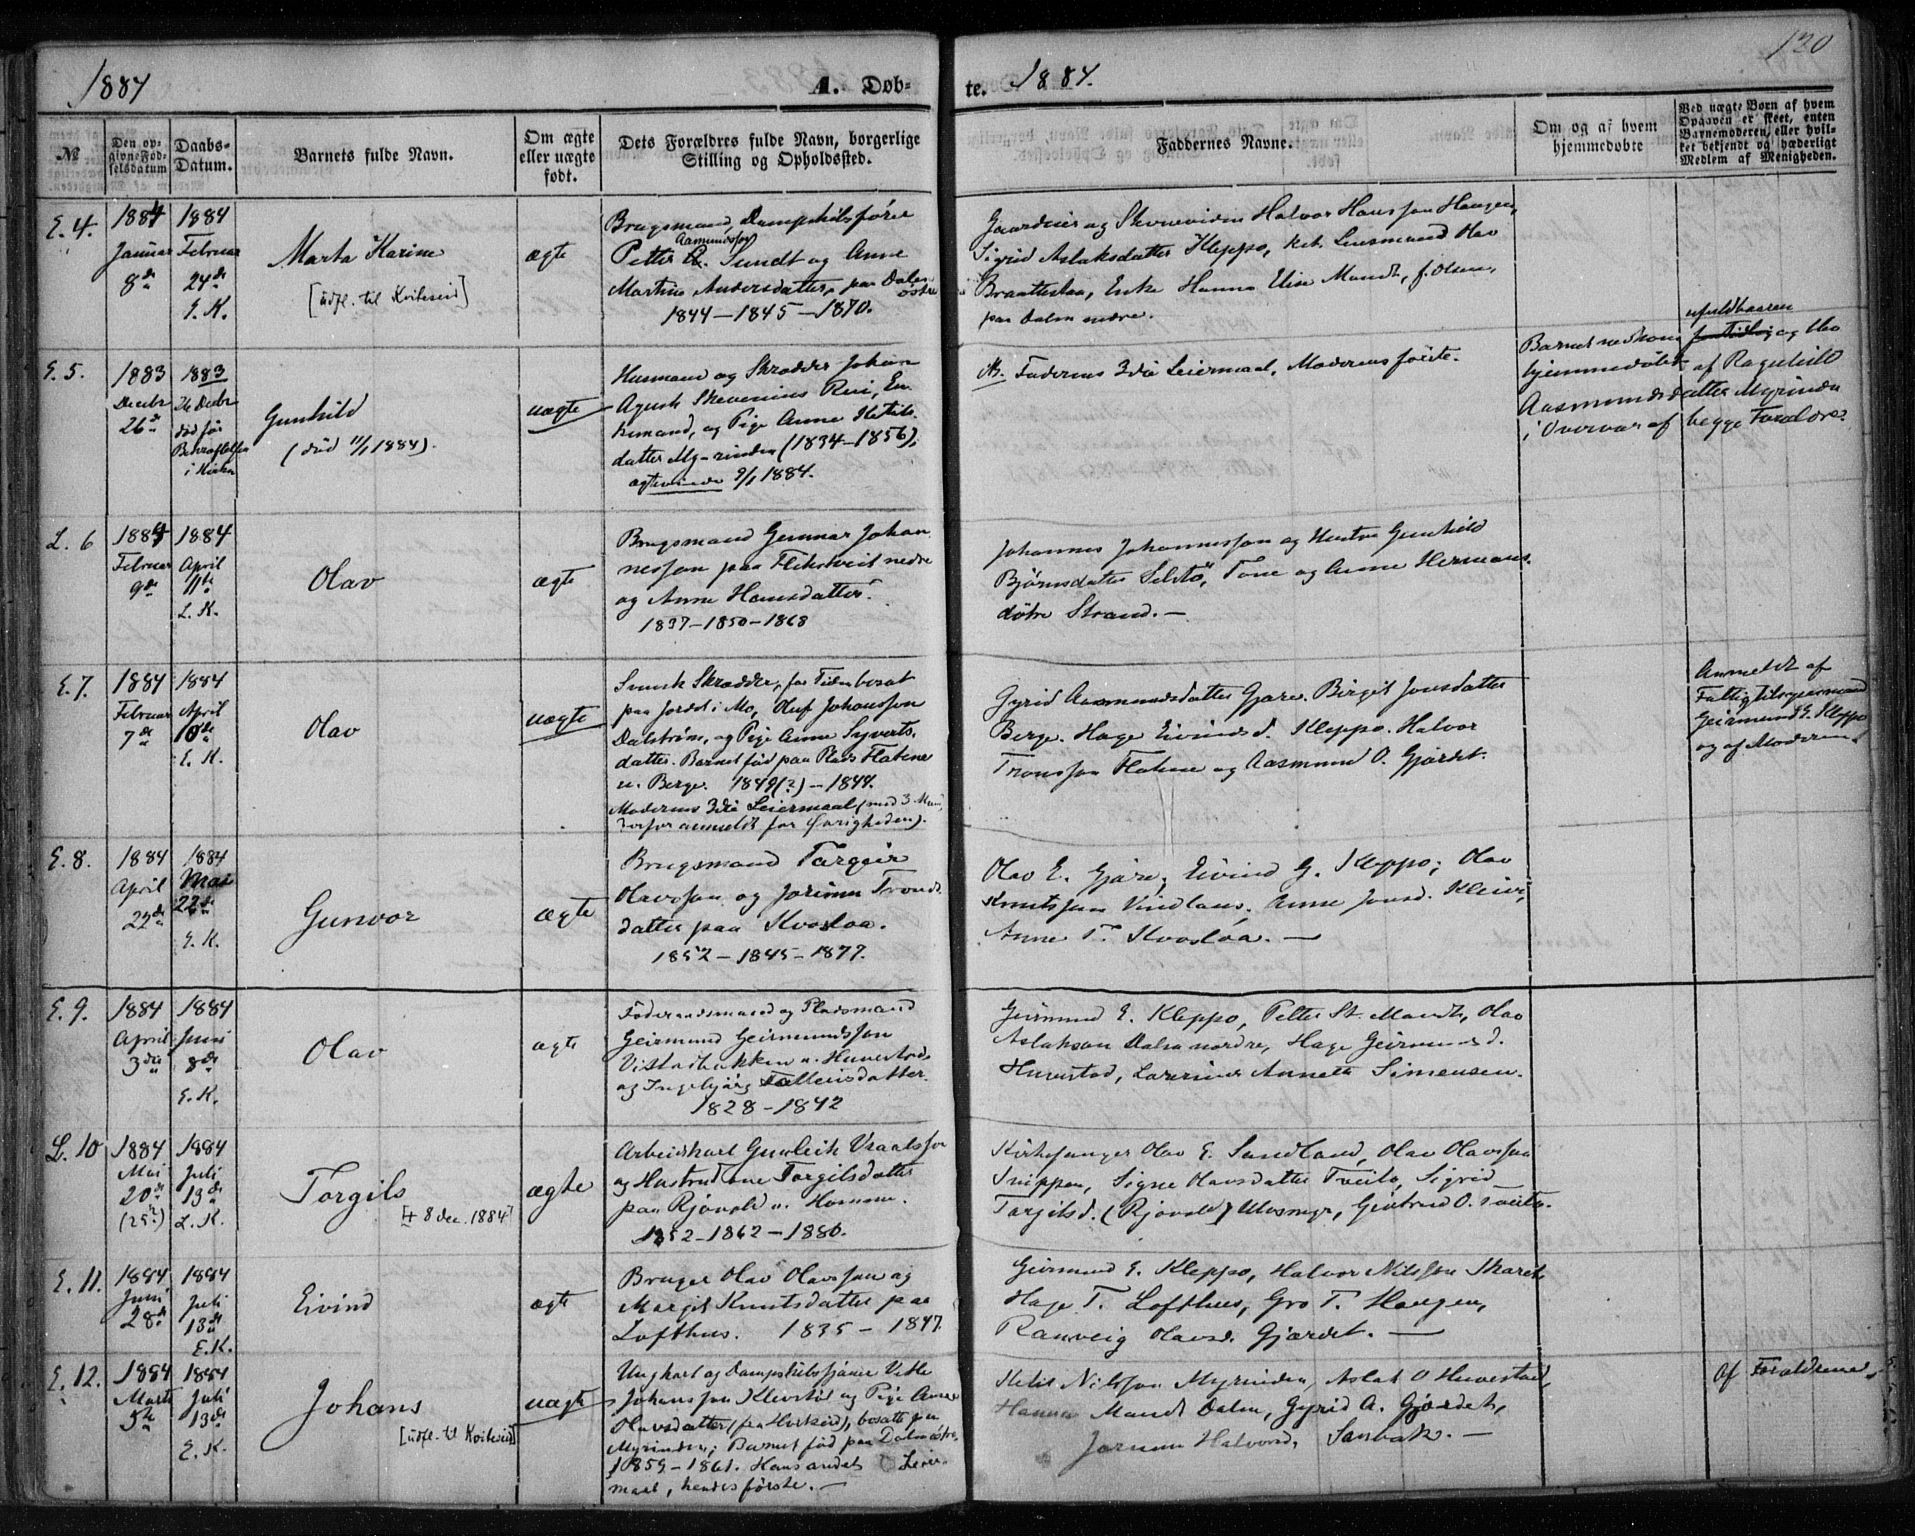 1884
A. Døb-
te. 1884.
130
№
Den opgivne Fødselsdatum
Daabs-Datum.
Barnets fulde Navn.
Om ægte eller uægte født.
Dets Forældres fulde Navn, borgerlige Stilling og Opholdssted.
Faddernes Navne.
Om og af hvem hjemmedøbte
Ved uægte Børn af hvem Opgaven er skeet, enten Barnemoderen, eller hvilket bekjendt og hæderligt Medlem af Menigheden.
E. 4.
1884 Januar 8de
1884 Februar 24de E. K.
Marta Karine
[udfl. til Kviteseid]
ægte
Brugsmand, Dampskibsfører
Petter Aasmundssøn Sundt og Anne
Martine Andersdatter, paa Dalen østre
1844 – 1845 – 1870.
Gaardeier og Skoveier Halvor Hansson Haugen,
Sigrid Aslaksdatter Kleppo, Lensmand Olav
Braatteslaa, Enke Hanna Elise Mandt, f. Olsen,
paa Dalen nedre.
E. 5.
1883 Decbr 26de
1883 26 Decbr død før Bekræftelsen i Kirken
Gunhild
(død 11/1 1884).
uægte
Husmand og Skrædder Johan
Agust Skevenius Rui, En-
kemand, og Pige Anne Ketils-
datter Myrinden (1834–1856),
ægteviede 9/1 1884.
NB. Faderens 3die Leiermaal, Moderens første.
Barnet nedkom ufuldbaaren og blev
hjemmedøbt af Ragnhild
Aasmundsdatter Myrinden
i Overvær af begge Forældre.
L. 6
1884 Februar 9de
1884 April 11te L. K.
Olav
ægte
Brugsmand Gunnar Johan-
nesson paa Flekstveit nedre
og Anne Hansdatter.
1837 – 1850 – 1868
Johannes Johannesson og Hustru Gunhild
Bjørnsdatter Selstø, Tone og Anne Hermans-
døtre Strand. –
E. 7.
1884 Februar 7de
1884 April 10de E. K.
Olav
uægte
Svensk Skrædder, for Tiden bosat
paa Jordet i Mo, Oluf Johansson
Dalstrøm, og Pige Anne Syverts-
datter. Barnet fød paa Plads Flatene
u. Berge. 1849(?) – 1844.
Moderens 3die Leiermaal (med 3 Mænd,
derfor anmeldt for Øvrigheden).
Gyrid Aasmundsdatter Gjare. Birgit Jonsdatter
Berge. Hage Eivinds d. Kleppo. Halvor
Tronsson Flatene og Aasmund O. Gjærdet.
Anmeldt af
Fattigtilsynsmand
Geirmund E. Kleppo
og af Moderen.
E. 8.
1884 April 22de
1884 Mai 22de E. K.
Gunvor
ægte
Brugsmand Targeir
Olavsson og Jorunn Tronds-
datter paa Kvosloa.
1852 – 1845 – 1877.
Olav E. Gjare, Eivind G. Kleppo; Olav
Knutsson Vindlaus, Anne Jonsd. Kleiv,
Anne T. Kvosloa. –
E. 9.
1884 April 3die
1884 Juni 8de E. K.
Olav
ægte
Føderaadsmand og Pladsmand
Geirmund Geirmundsson
Vistadbakken u. Huvestad
og Ingebjørg Talleivsdatter.
1828 – 1842
Geirmund E. Kleppo, Petter St. Mandt, Olav
Aslakson Dalen nordre, Hage Geirmunds d.
Huvestad, Laurine Annette Simensen.
L. 10
1884 Mai 20de (25?)
1884 Juli 13de L. K.
Torgils
[+ 8 dec. 1884]
ægte
Arbeidskarl Gunleik Vraalsson
og Hustru Anne Torgilsdatter
paa Rjovold u. Homme.
1852 – 1862 – 1880.
Kirkesanger Olav E. Sundland, Olav Olavsson
Snippen, Signe Olavsdatter Tveito, Sigrid
Targilsd. (Rjovold) Ulvsmyr, Gintrud O. Tveito.
E. 11.
1884 Juni 28de
1884 Juli 13de E. K.
Eivind
ægte
Bruger Olav Olavsson og
Margit Knutsdatter paa
Lofthus. 1835 – 1847.
Geirmund E. Kleppo, Halvor Nilsson Skaret,
Hage T. Lofthus, Gro T. Haugen,
Ranveig Olavsd. Gjærdet. –
E. 12.
1884 Marts 5te
1884 Juli 13de E. K.
Johans
[udfl. til Kviteseid]
uægte
Ungkarl og Dampskibstjener Vetle
Johansson Klevstøl og Pige Anne
Olavsdatter (fra Hørskeid), bosatte paa
Myrinden; Barnet fød paa Dalen østre.
1859 – 1861. Hans andet Leier-
maal, hendes første. –
Ketil Nilsson Myrinden, Aslak O Huvestad,
Hanna Mandt Dalen, Gyrid A. Gjærdet,
Jorunn Halvorsd. Sanbak. –
Af Forældrene.